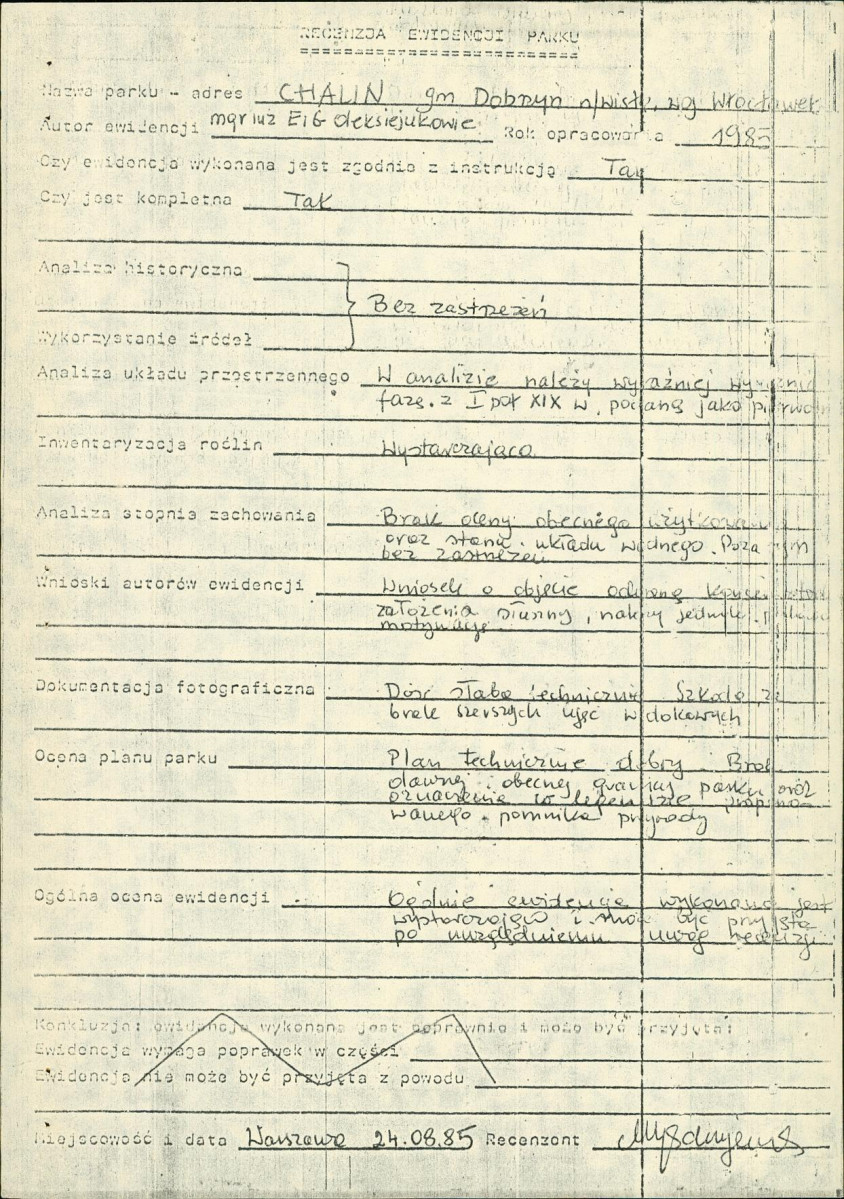 RECENZJA EWIDENCJI PARKU
Nazwa parku - adres CHALIN gm Dobrzyń n/wisłą, woj Włocławek
Autor ewidencji mgr inż E i G Oleksiejukowie Rok opracowania 1985
Czy ewidencja wykonana jest zgodnie z instrukcją Tak
Czy jest kompletna Tak
Analiza historyczna
Bez zastrzeżeń
Wykorzystanie źródeł
Analiza układu przestrzennego W analizie należy wyraźniej
fazę z I poł XIX w, podaną jako
Inwentaryzacja roślin Wystarczająca
Analiza stopnia zachowania Brak oceny obecnego użytkowania
oraz stanu układu wodnego. Poza tym
bez zastrzeżeń
Wnioski autorów ewidencji Wniosek o objęcie ochroną
założenia słuszny, należy jednak
motywację
Dokumentacja fotograficzna Dość słaba technicznie Szkoda, że
brak szerszych ujęć widokowych
Ocena planu parku Plan technicznie dobry. Brak
dawnej i obecnej granicy parku oraz
oznaczenia w legendzie propono-
wanego pomnika przyrody
Ogólna ocena ewidencji Ogólnie ewidencja wykonana jest
wystarczająco i może być przyjęta
po uwzględnieniu uwag recenzji
Konkluzja: ewidencja wykonana jest poprawnie i może być przyjęta:
Ewidencja wymaga poprawek w części
Ewidencja nie może być przyjęta z powodu
Miejscowość i data Warszawa 24.08.85 Recenzent